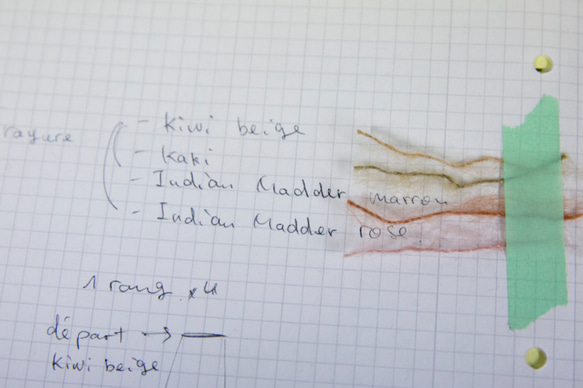 rayure
- Kiwi beige
- Kaki
- Indian Madder marron
- Indian Madder rose.
1 rang x4
départ →
kiwi beige